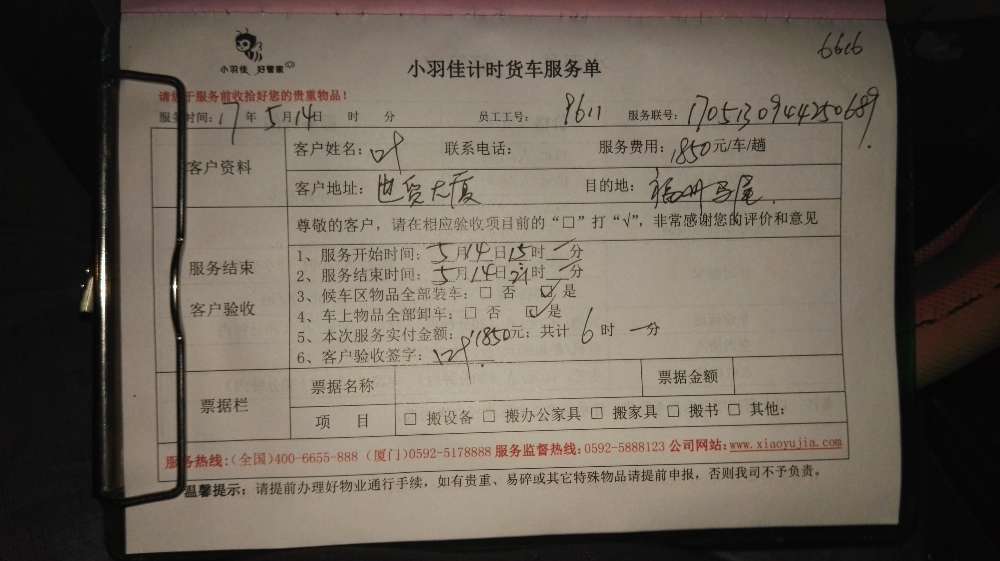 6616
小羽佳 好管家
小羽佳计时货车服务单
请您于服务前收拾好您的贵重物品！
服务时间：17年5月14日 时 分 员工工号： 9611 服务联号：1705130944250689
客户资料 客户姓名：叶 联系电话： 服务费用：1850元/车/趟
客户地址：世贸大厦 目的地：福州马尾
尊敬的客户，请在相应验收项目前的“□”打“√”，非常感谢您的评价和意见
服务结束 客户验收
1、服务开始时间：5月14日15时 一分
2、服务结束时间：5月14日21时 一分
3、候车区物品全部装车：□ 否 ☑ 是
4、车上物品全部卸车：□ 否 ☑ 是
5、本次服务实付金额：1850元；共计 6 时 一分
6、客户验收签字：叶
票据栏 票据名称 票据金额
项 目 □ 搬设备 □ 搬办公家具 □ 搬家具 □ 搬书 □ 其他：
服务热线：（全国）400-6655-888（厦门）0592-5178888 服务监督热线：0592-5888123 公司网站：www.xiaoyujia.com
温馨提示：请提前办理好物业通行手续，如有贵重、易碎或其它特殊物品请提前申报，否则我司不予负责。